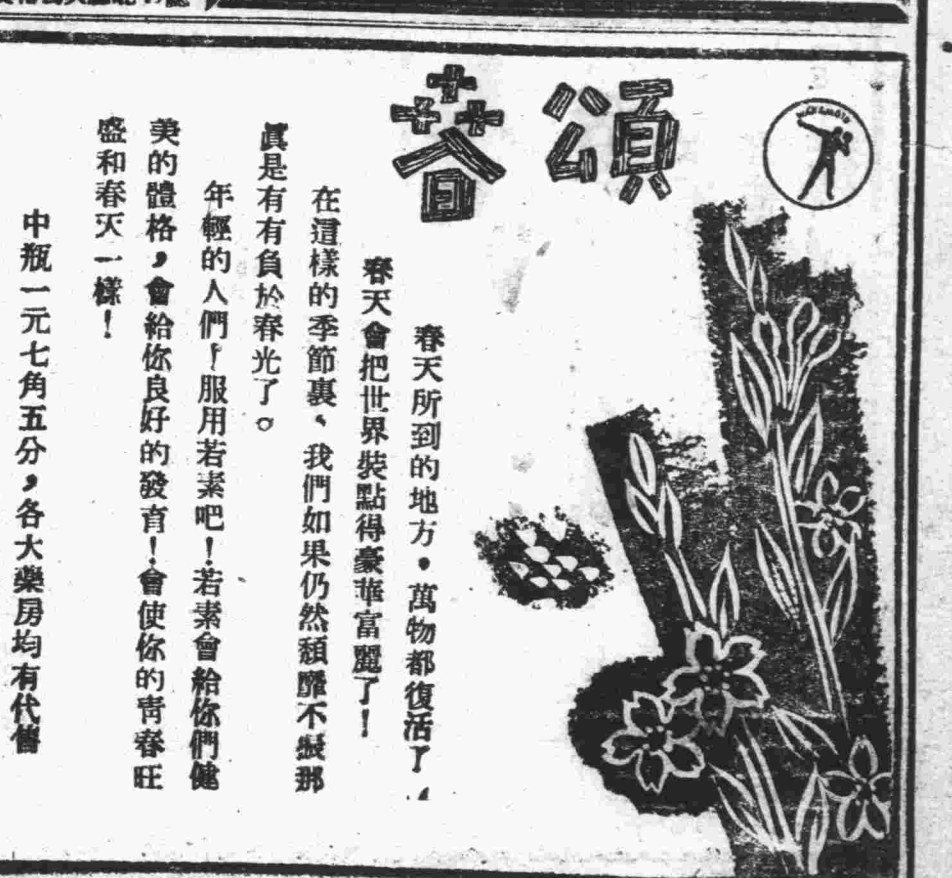 頌春
春天所到的地方，萬物都復活了，
春天會把世界裝點得豪華富麗了！
在這樣的季節裏、我們如果仍然頹靡不振那
眞是有有負於春光了。
年輕的人們！服用若素吧！若素會給你們健
美的體格，會給你良好的發育！會使你的靑春旺
盛和春天一樣！
中瓶一元七角五分，各大藥房均有代售